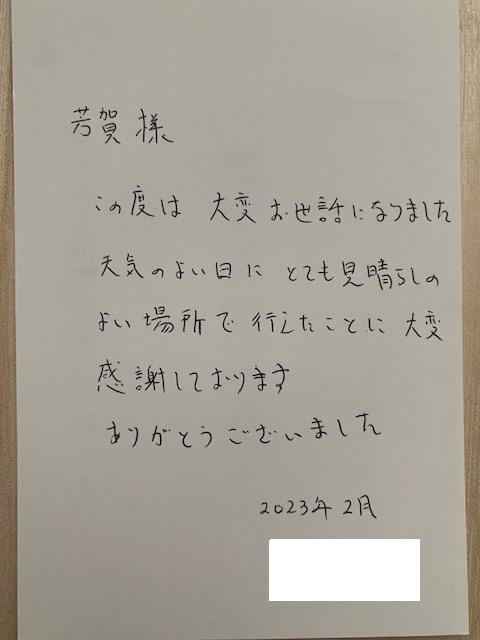 芳賀 様
この度は 大変 お世話になりました
天気のよい日に とても見晴らしの
よい場所で 行えたことに 大変
感謝しております
ありがとうございました
2023年 2月